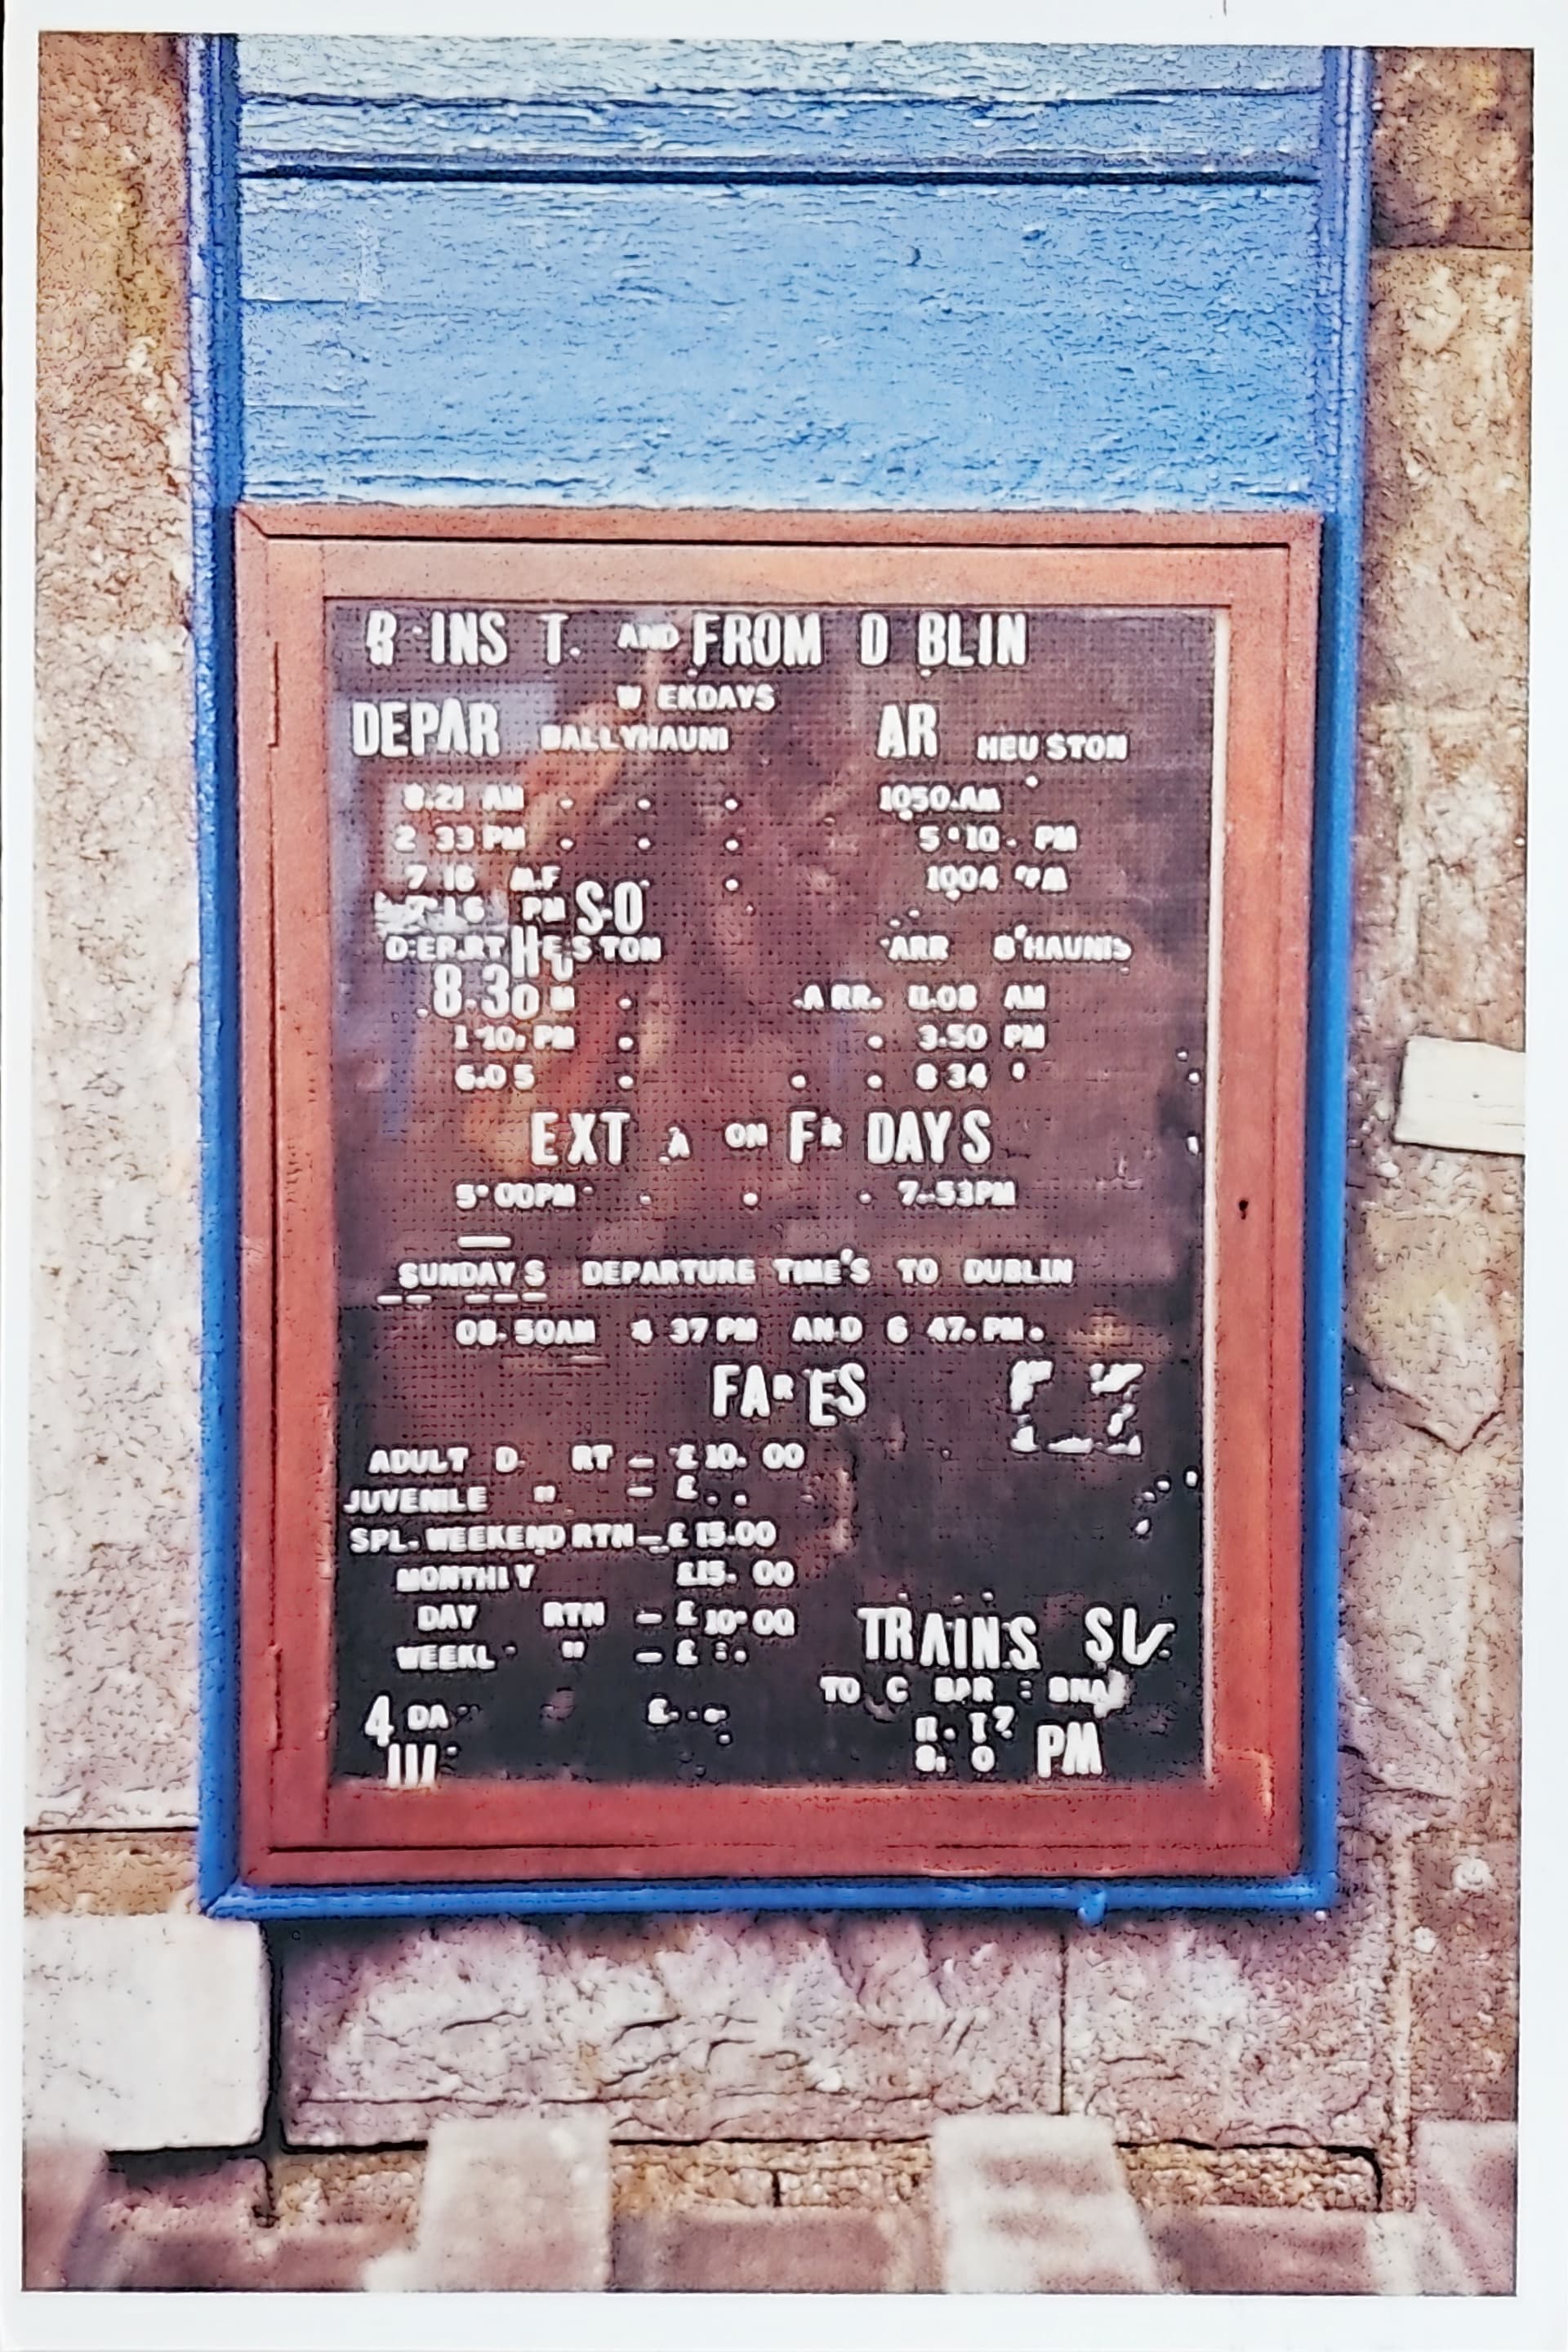 INS T. AND FROM D BLIN
W EKDAYS
DEPAR BALLYHAUNI AR HEUSTON
8.21 AM 1050.AM
2 33 PM 5.10. PM
7 16 1004 PM
7.16 PM S.O
DEP.RT HEUSTON ARR B'HAUNIS
8.30 M ARR. 11.08 AM
1.10. PM 3.50 PM
6.05 8 34
EXT A ON FR DAYS
5.00PM 7.53PM
SUNDAYS DEPARTURE TIME'S TO DUBLIN
08.50AM 4 37 PM AND 6 47. PM.
FARES
ADULT D RT — £10.00
JUVENILE " — £..
SPL. WEEKEND RTN — £15.00
MONTHLY £15.00
DAY RTN — £10.00
WEEKL " — £
4 DA £
TRAINS
TO C
PM